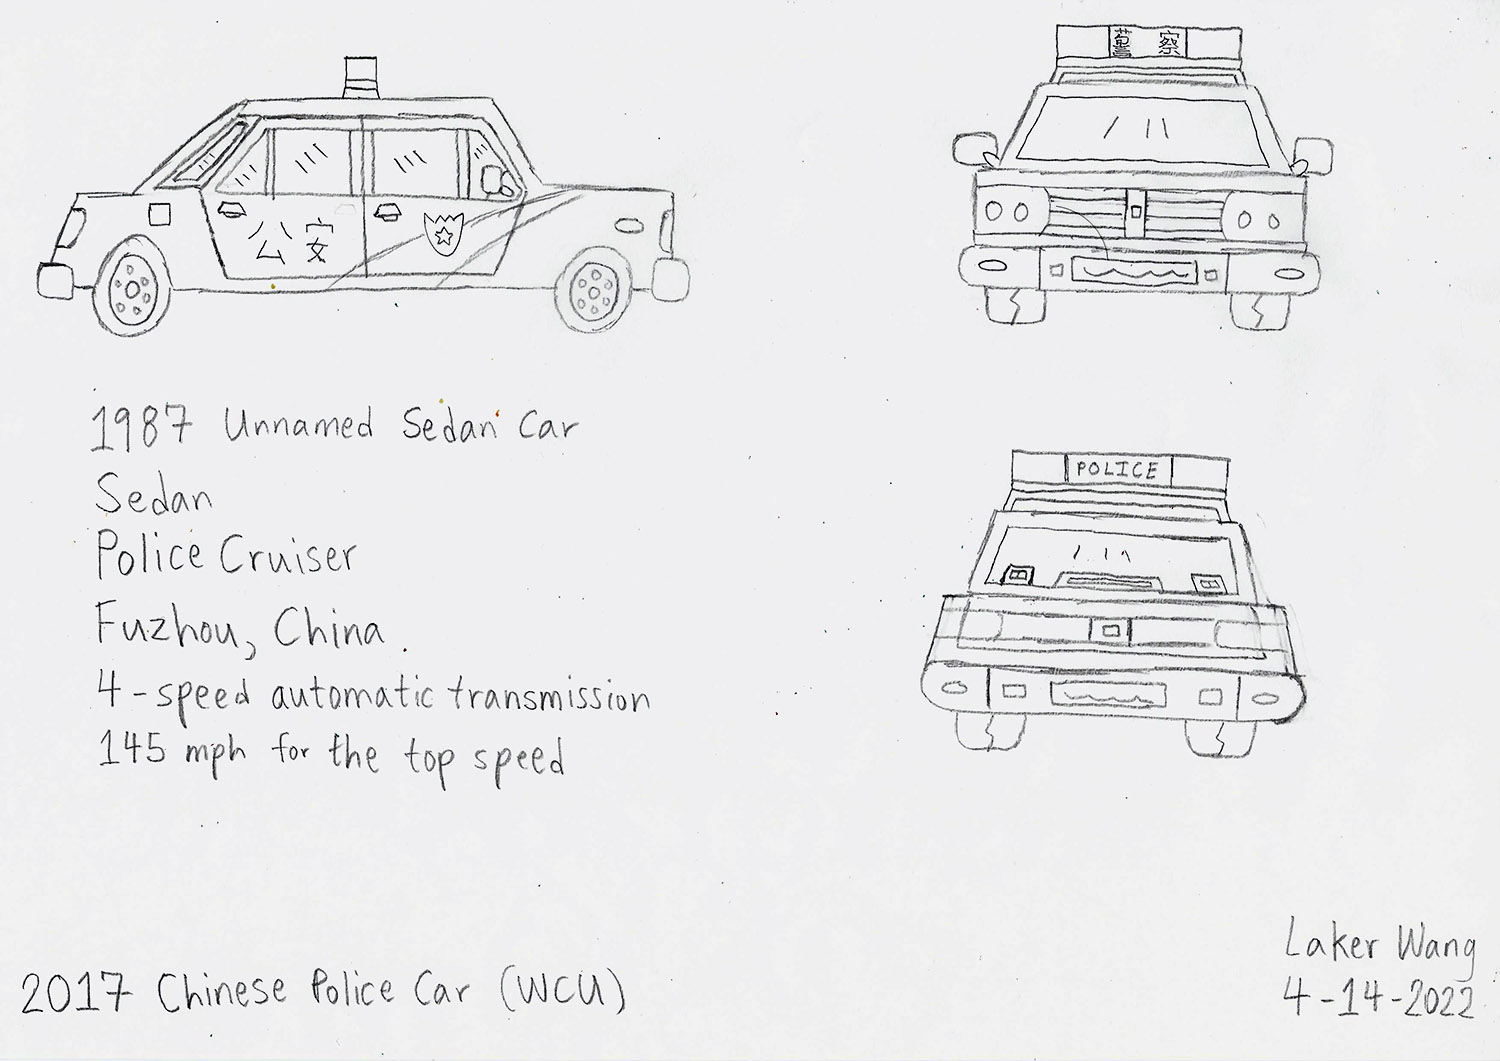 公安
警察
1987 Unnamed Sedan Car
Sedan
Police Cruiser
Fuzhou, China.
4-speed automatic transmission
145 mph for the top speed
POLICE
2017 Chinese Police Car (WCU)
Laker Wang
4-14-2022